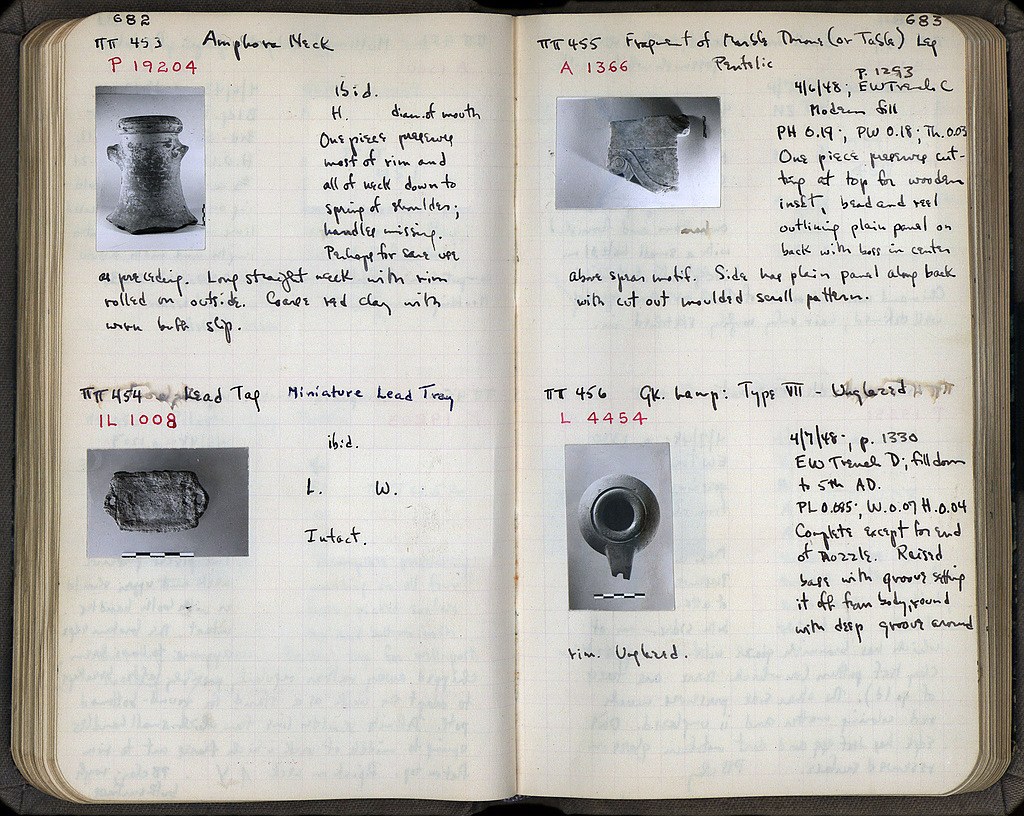 682
ΠΠ 453 Amphora Neck
P 19204
ibid.
H. diam. of mouth
One piece preserves
most of rim and
all of neck down to
spring of shoulder;
handles missing.
Perhaps for same use
as preceding. Long straight neck with rim
rolled on outside. Coarse red clay with
worn buff slip.
ΠΠ 454 Lead Tag Miniature Lead Tray
IL 1008
ibid.
L. W.
Intact.
683
ΠΠ 455 Fragment of Marble Throne (or Table) Leg
A 1366 Pentelic
p. 1293
4/6/48; EW Trench C
Modern fill
PH 0.19; PW 0.18; Th. 0.03
One piece preserves cut-
ting at top for wooden
inset, bead and reel
outlining plain panel on
back with boss in center
above spray motif. Side has plain panel along back
with cut out moulded scroll pattern.
ΠΠ 456 Gk. Lamp: Type VII - Unglazed
L 4454
4/7/48; p. 1330
EW Trench D; fill down
to 5th AD.
PL 0.085; W. 0.07 H. 0.04
Complete except for end
of nozzle. Raised
base with groove setting
it off from body, round
with deep groove around
rim. Unglazed.